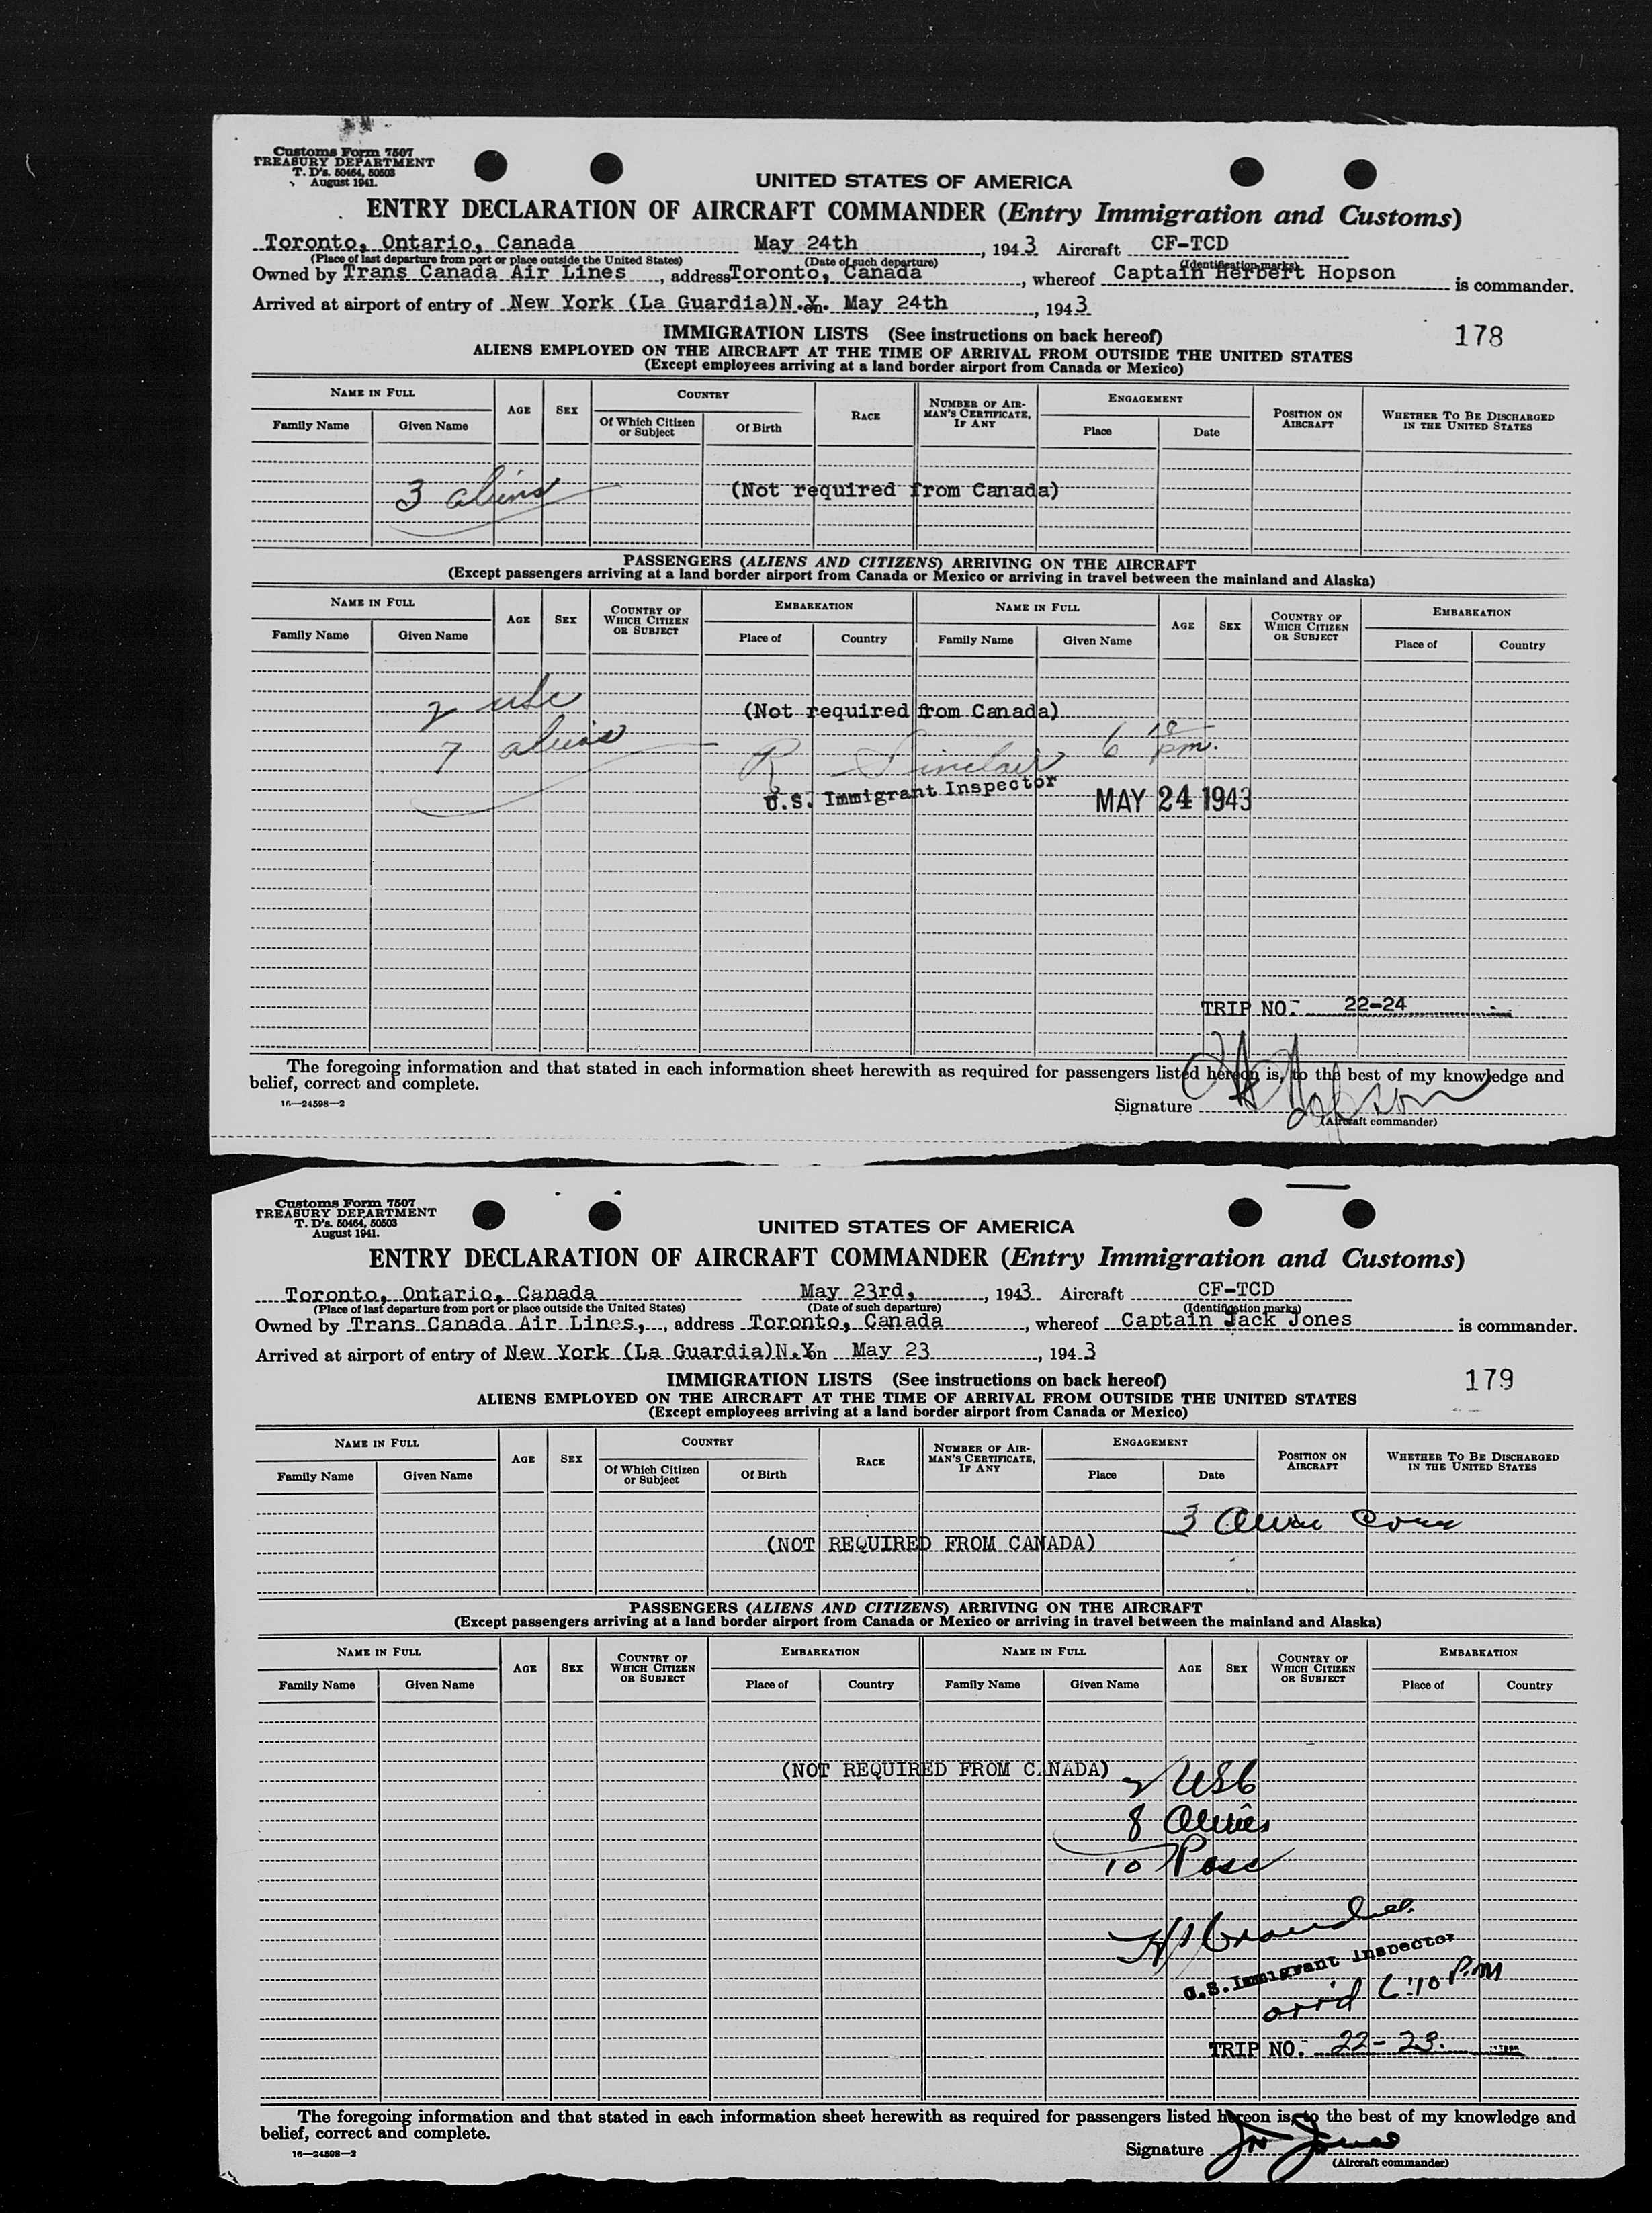 Customs Form 7507
TREASURY DEPARTMENT
T. D's. 50464, 50503
August 1941.
UNITED STATES OF AMERICA
ENTRY DECLARATION OF AIRCRAFT COMMANDER (Entry Immigration and Customs)
Toronto, Ontario, Canada May 24th, 1943 Aircraft CF-TCD
(Place of last departure from port or place outside the United States) (Date of such departure) (Identification marks)
Owned by Trans Canada Air Lines, address Toronto, Canada, whereof Captain Herbert Hopson is commander.
Arrived at airport of entry of New York (La Guardia)N.Y. on May 24th, 1943
IMMIGRATION LISTS (See instructions on back hereof) 178
ALIENS EMPLOYED ON THE AIRCRAFT AT THE TIME OF ARRIVAL FROM OUTSIDE THE UNITED STATES
(Except employees arriving at a land border airport from Canada or Mexico)
NAME IN FULL AGE SEX COUNTRY RACE NUMBER OF AIRMAN'S CERTIFICATE, IF ANY ENGAGEMENT POSITION ON AIRCRAFT WHETHER TO BE DISCHARGED IN THE UNITED STATES
Family Name Given Name Of Which Citizen or Subject Of Birth Place Date
3 aliens (Not required from Canada)
PASSENGERS (ALIENS AND CITIZENS) ARRIVING ON THE AIRCRAFT
(Except passengers arriving at a land border airport from Canada or Mexico or arriving in travel between the mainland and Alaska)
NAME IN FULL AGE SEX COUNTRY OF WHICH CITIZEN OR SUBJECT EMBARKATION NAME IN FULL AGE SEX COUNTRY OF WHICH CITIZEN OR SUBJECT EMBARKATION
Family Name Given Name Place of Country Family Name Given Name Place of Country
2 usc (Not required from Canada)
7 aliens R Sinclair 6 18 pm.
U.S. Immigrant Inspector MAY 24 1943
TRIP NO. 22-24
The foregoing information and that stated in each information sheet herewith as required for passengers listed hereon is, to the best of my knowledge and
belief, correct and complete.
16—24598—2
Signature H Hopson
(Aircraft commander)
Customs Form 7507
TREASURY DEPARTMENT
T. D's. 50464, 50503
August 1941.
UNITED STATES OF AMERICA
ENTRY DECLARATION OF AIRCRAFT COMMANDER (Entry Immigration and Customs)
Toronto, Ontario, Canada May 23rd, 1943 Aircraft CF-TCD
(Place of last departure from port or place outside the United States) (Date of such departure) (Identification marks)
Owned by Trans Canada Air Lines, address Toronto, Canada, whereof Captain Jack Jones is commander.
Arrived at airport of entry of New York (La Guardia)N.Y. on May 23, 1943
IMMIGRATION LISTS (See instructions on back hereof) 179
ALIENS EMPLOYED ON THE AIRCRAFT AT THE TIME OF ARRIVAL FROM OUTSIDE THE UNITED STATES
(Except employees arriving at a land border airport from Canada or Mexico)
NAME IN FULL AGE SEX COUNTRY RACE NUMBER OF AIRMAN'S CERTIFICATE, IF ANY ENGAGEMENT POSITION ON AIRCRAFT WHETHER TO BE DISCHARGED IN THE UNITED STATES
Family Name Given Name Of Which Citizen or Subject Of Birth Place Date
3 Alien
(NOT REQUIRED FROM CANADA)
PASSENGERS (ALIENS AND CITIZENS) ARRIVING ON THE AIRCRAFT
(Except passengers arriving at a land border airport from Canada or Mexico or arriving in travel between the mainland and Alaska)
NAME IN FULL AGE SEX COUNTRY OF WHICH CITIZEN OR SUBJECT EMBARKATION NAME IN FULL AGE SEX COUNTRY OF WHICH CITIZEN OR SUBJECT EMBARKATION
Family Name Given Name Place of Country Family Name Given Name Place of Country
(NOT REQUIRED FROM CANADA) 2 USC
8 Aliens
10 Pass
U.S. Immigrant Inspector
arr'd 6:10 P.M
TRIP NO. 22-23.
The foregoing information and that stated in each information sheet herewith as required for passengers listed hereon is, to the best of my knowledge and
belief, correct and complete.
16—24598—2
Signature Jn Jones
(Aircraft commander)